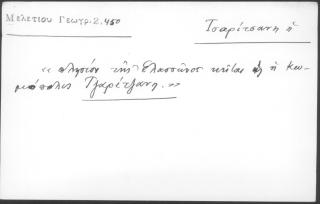 Μελετίου Γεωγρ. 2, 450
Τσαρίτσανη ἡ
« πλησίον τῆς Ἐλασσῶνος κεῖται ἡ Κω-
μόπολις Τζαρέτζανη. »